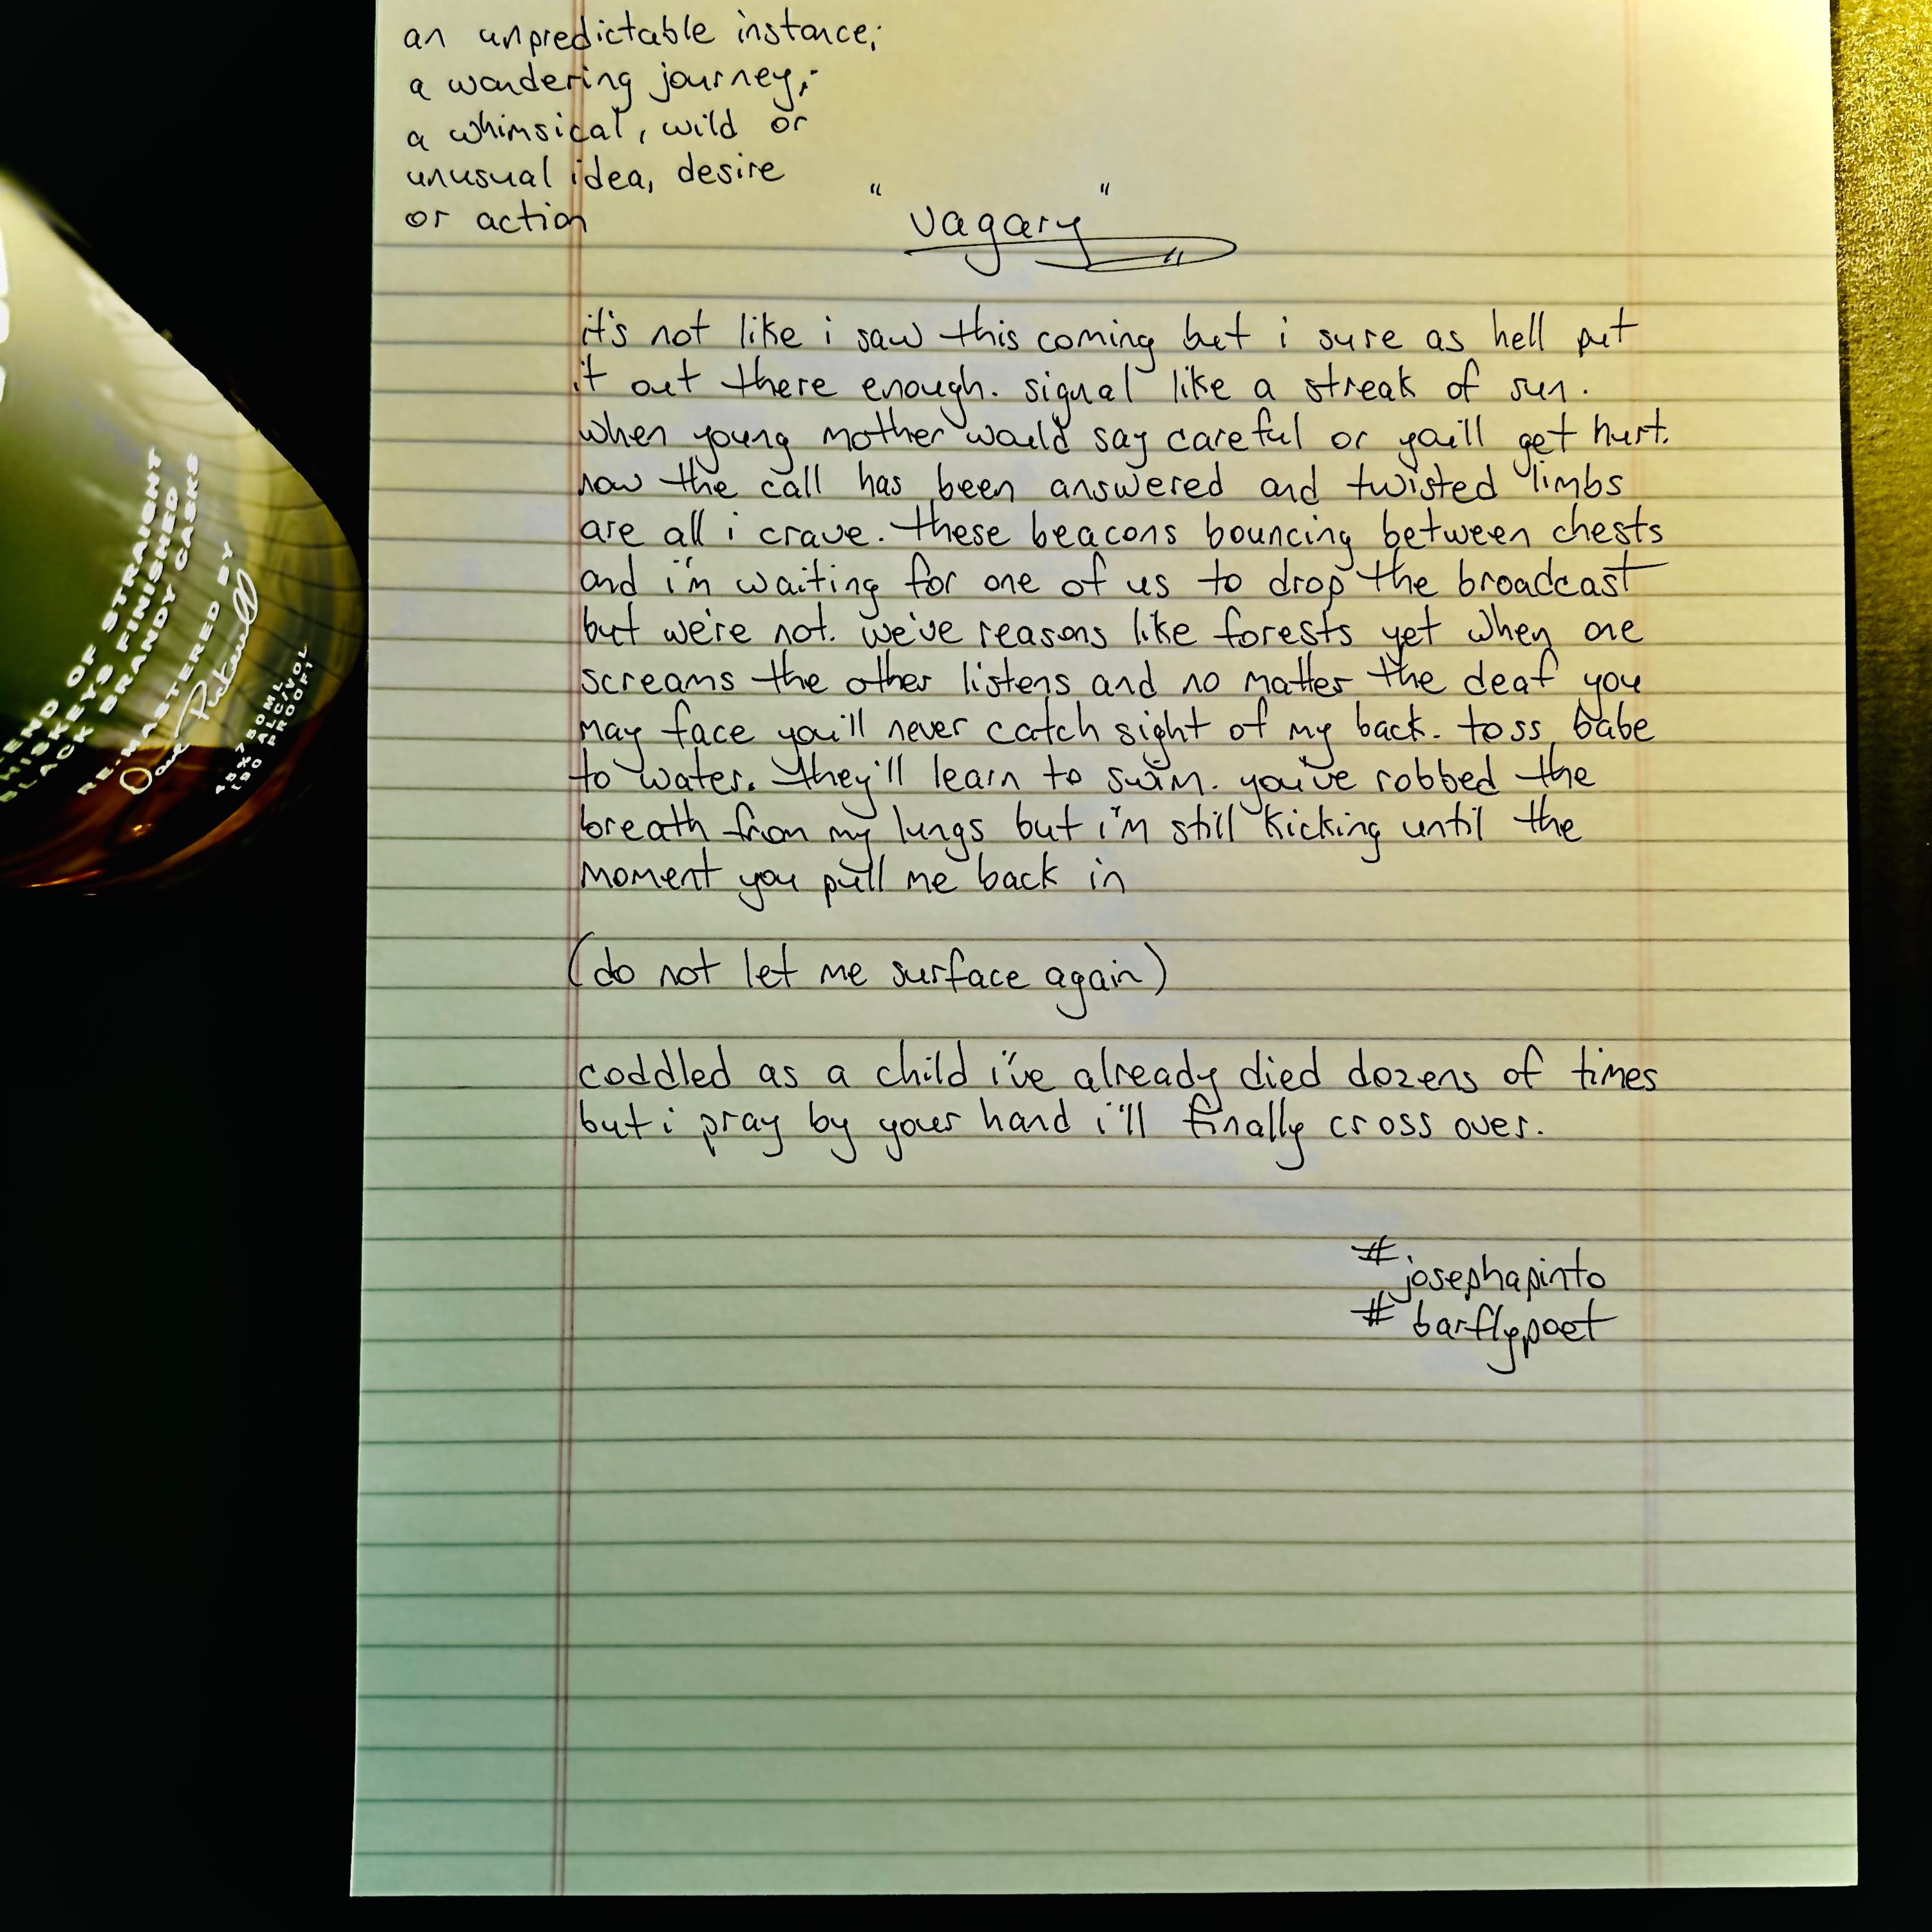 an unpredictable instance;
a wandering journey;
a whimsical, wild or
unusual idea, desire
or action
"vagary"
it's not like i saw this coming but i sure as hell put
it out there enough. signal like a streak of sun.
when young mother would say careful or you'll get hurt.
now the call has been answered and twisted limbs
are all i crave. these beacons bouncing between chests
and i'm waiting for one of us to drop the broadcast
but we're not. we've reasons like forests yet when one
screams the other listens and no matter the deaf you
may face you'll never catch sight of my back. toss babe
to water. they'll learn to swim. you've robbed the
breath from my lungs but i'm still kicking until the
moment you pull me back in
(do not let me surface again)
coddled as a child i've already died dozens of times
but i pray by your hand i'll finally cross over.
#josephapinto
#barflypoet
END OF STRAIGHT
HISKEYS FINISHED
BLACK BRANDY CASKS
RE-MASTERED BY
Dave
750ML
ALC/VOL
PROOF